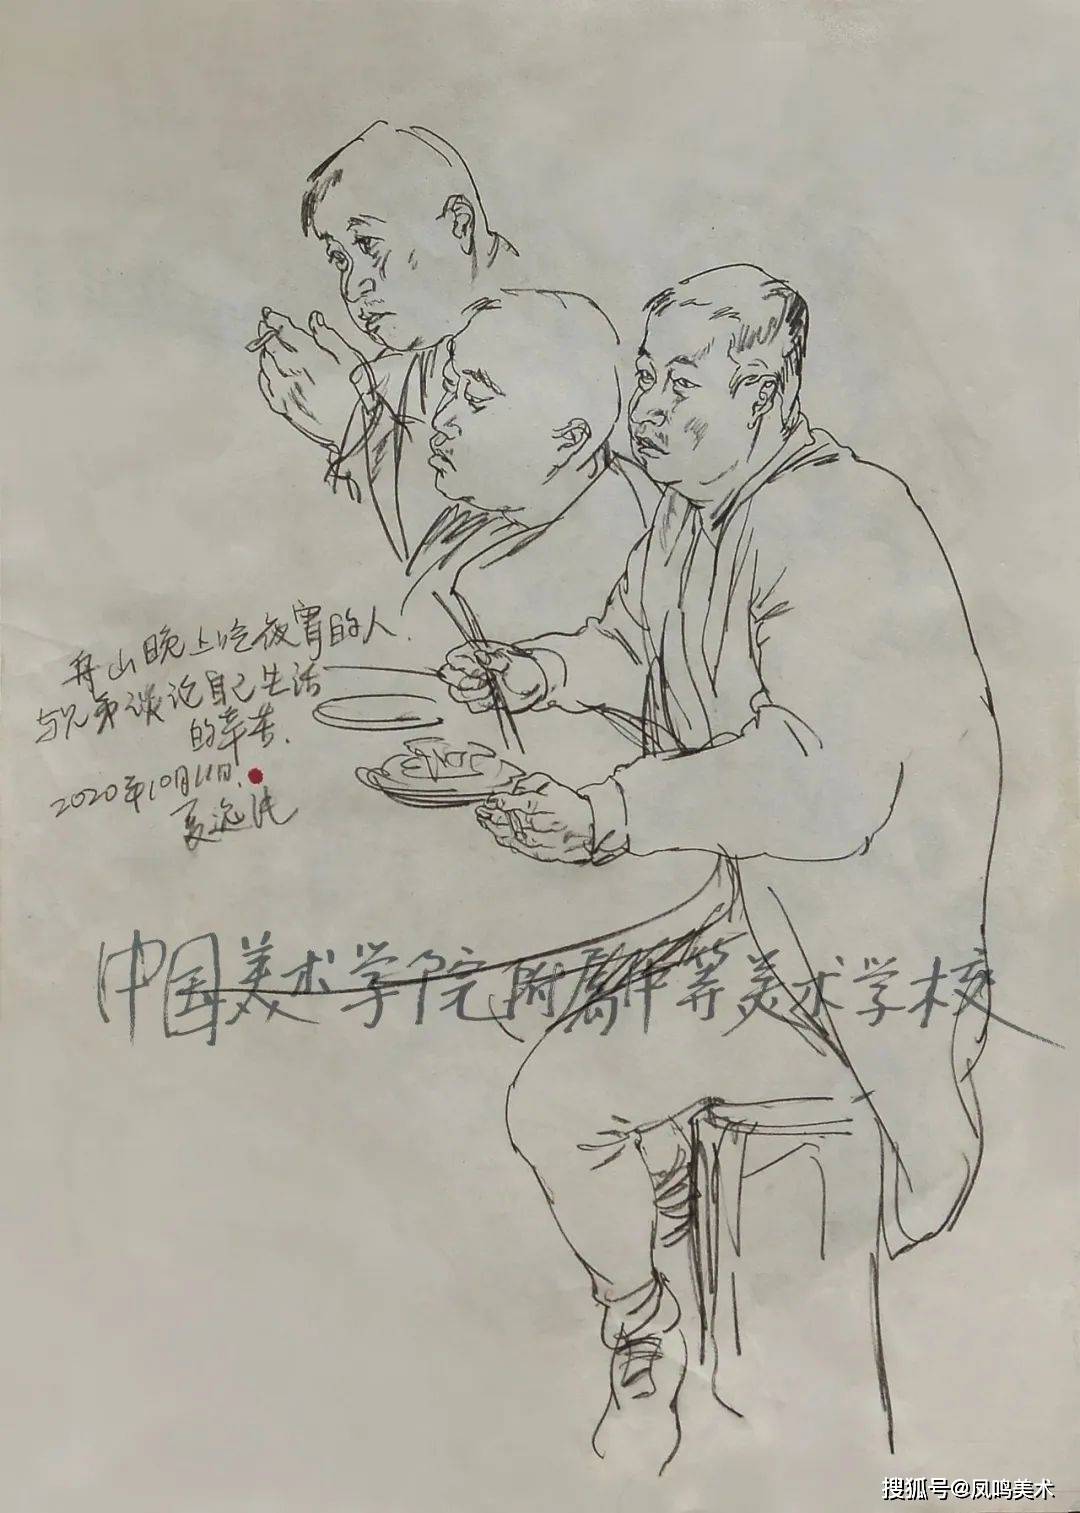 舟山晚上吃夜宵的人.
与兄弟谈论自己生活
的辛苦.
2020年10月11日.
中国美术学院附属中等美术学校
搜狐号@凤鸣美术